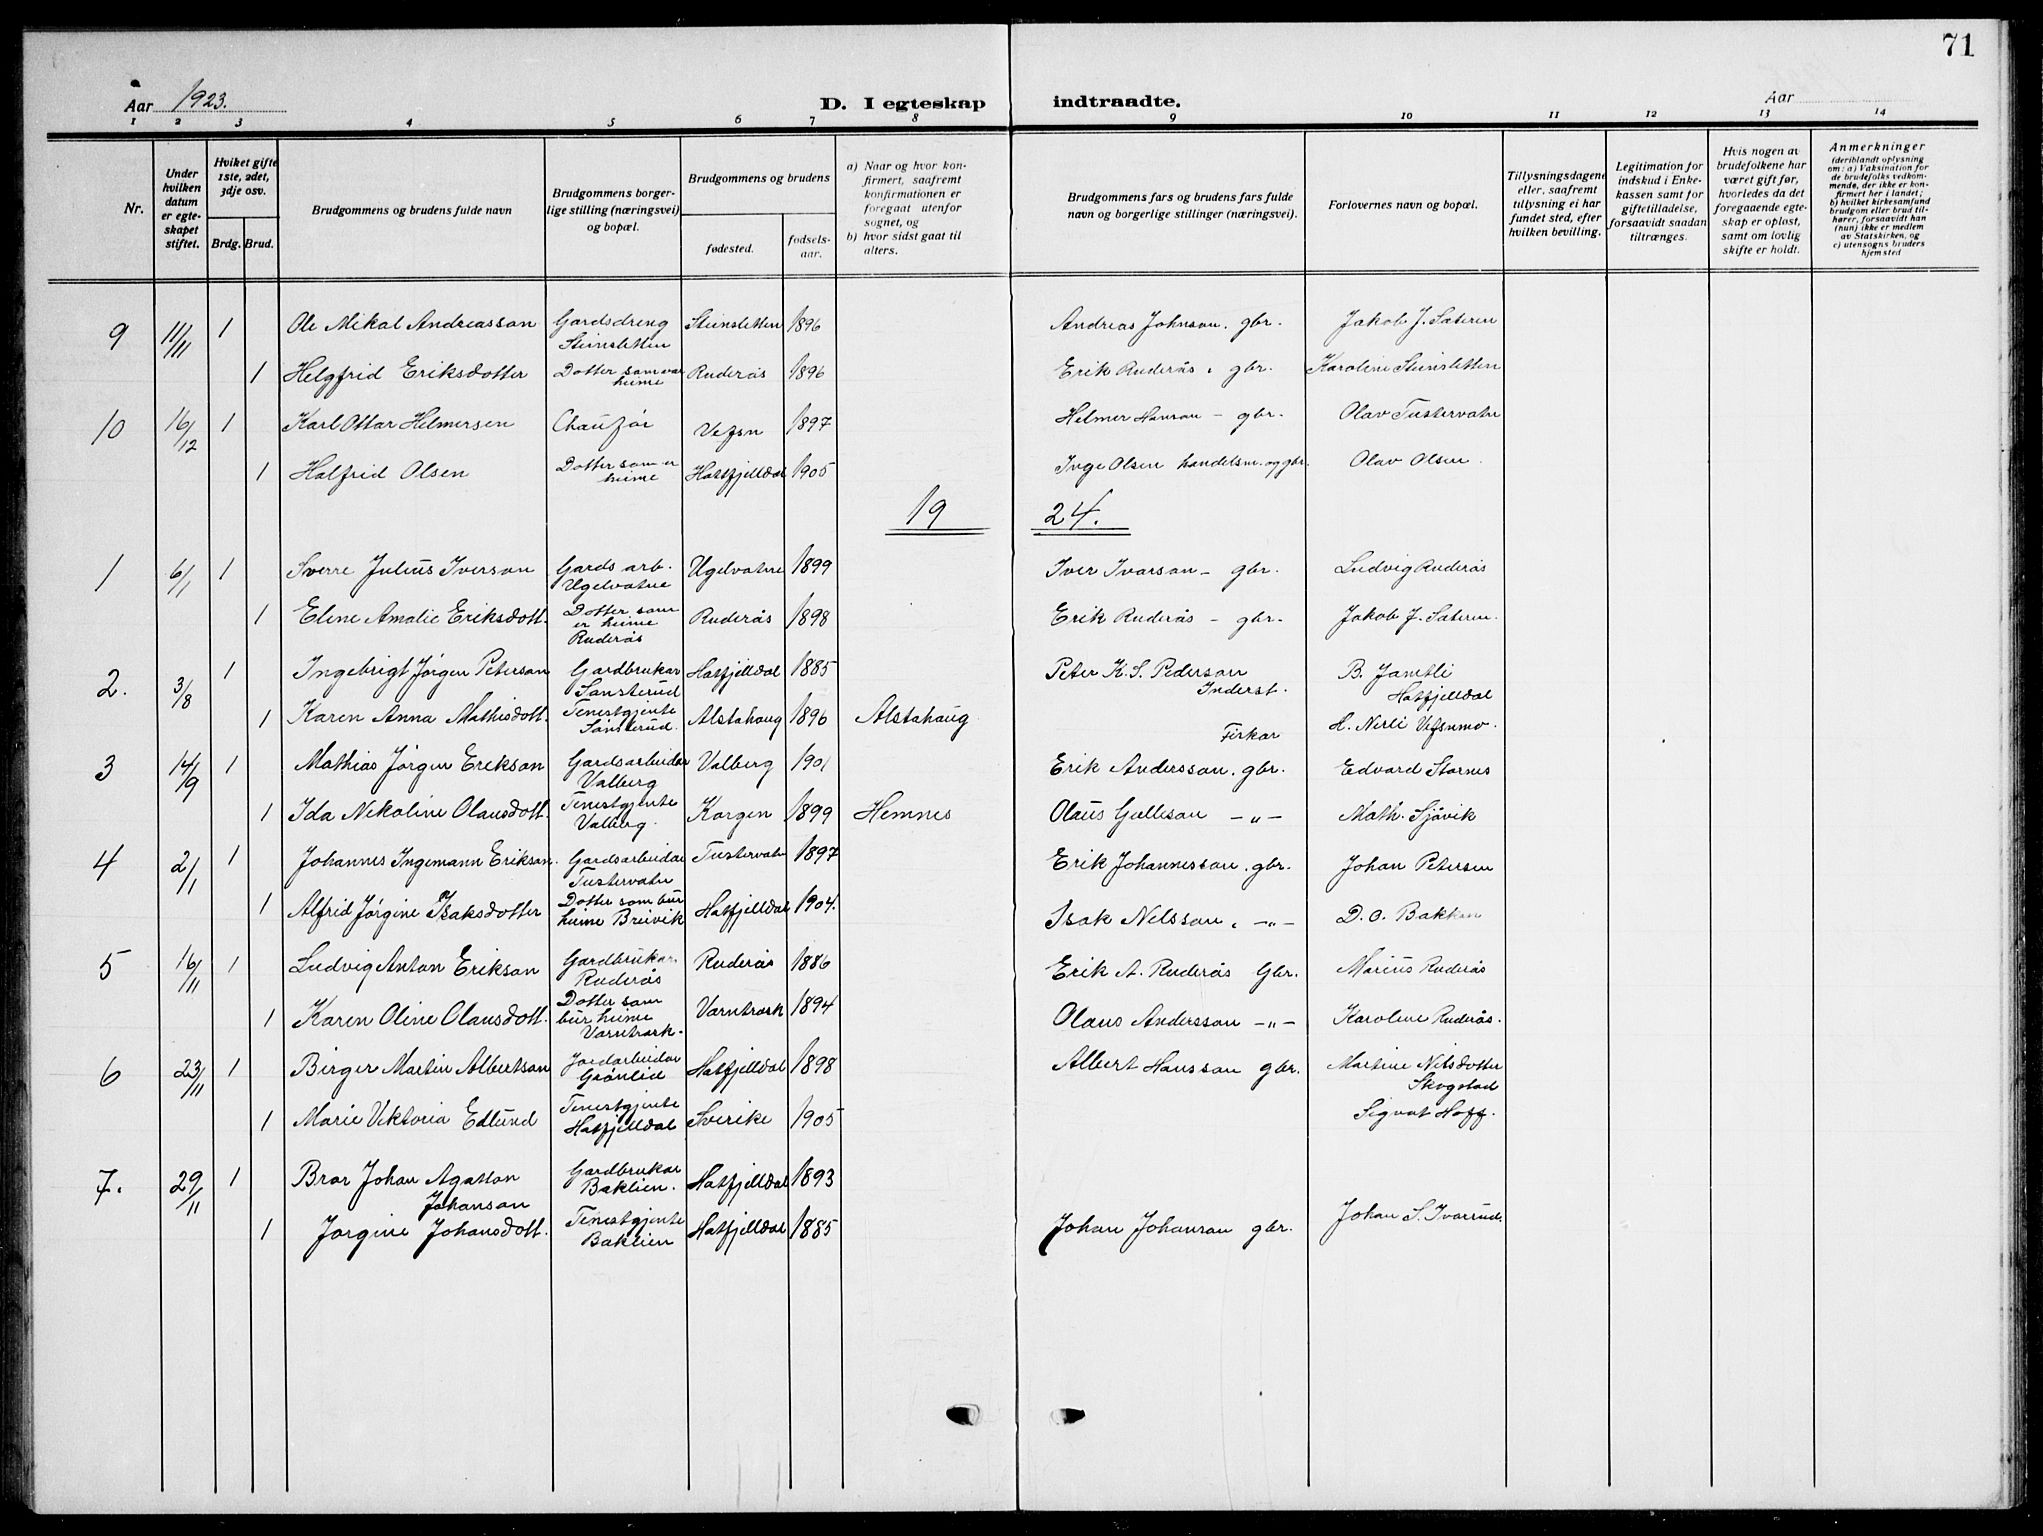 71
Aar 1923.
D. I egteskap indtraadte.
Aar
1 2 3 4 5 6 7 8 9 10 11 12 13 14
Nr.
Under hvilken datum er egteskapet stiftet.
Hviket gifte 1ste, 2det, 3dje osv.
Brdg. Brud.
Brudgommens og brudens fulde navn
Brudgommens borgerlige stilling (næringsvei) og bopæl.
Brudgommens og brudens
fødested.
fødselsaar.
a) Naar og hvor konfirmert, saafremt konfirmationen er foregaat utenfor sognet, og
b) hvor sidst gaat til alters.
Brudgommens fars og brudens fars fulde navn og borgerlige stillinger (næringsvei).
Forlovernes navn og bopæl.
Tillysningsdagene eller, saafremt tillysning ei har fundet sted, efter hvilken bevilling.
Legitimation for indskud i Enkekassen samt for giftetilladelse, forsaavidt saadan tiltrænges.
Hvis nogen av brudefolkene har været gift før, hvorledes da det foregaaende egteskap er opløst, samt om lovlig skifte er holdt.
Anmerkninger
(deriblandt oplysning om: a) Vaksination for de brudefolks vedkommende, der ikke er konfirmert her i landet; b) hvilket kirkesamfund brudgom eller brud tilhører, forsaavidt han (hun) ikke er medlem av Statskirken, og c) utensogns bruders hjemsted
9 11/11 1 Ole Mikal Andreasson Gardsdreng Steinsletten Steinsletten 1896 Andreas Johnson. gbr. Jakob J. Sæteren
1 Helgfrid Eriksdotter Dotter som var heime Ruderås 1896 Erik Ruderås, gbr. Karoline Steinsletten
10 16/12 1 Karl Ottar Helmersen Chaufør Vefsn 1897 Helmer Hanson - gbr. Olav Tustervatn
1 Halfrid Olsen Dotter som er heime Hatfjelldal 1905 Inge Olsen handelsm. og gbr. Olav Olsen.
19 24.
1 6/1 1 Sverre Julius Iverson Gards arb. Ugelvatne Ugelvatne 1899 Iver Ivarson - gbr. Ludvig Ruderås
1 Eline Amalie Eriksdott. Dotter som er heime Ruderås Ruderås 1898 Erik Ruderås - gbr. Jakob J. Sæteren.
2. 3/8 1 Ingebrigt Jørgen Peterson Gardbrukar Sansterud Hatfjelldal 1885 Peter K. S. Pederson Inderst. B. Jamtli Hatfjelldal
1 Karen Anna Mathisdott. Tenestgjente Sansterud. Alstahaug 1896 Alstahaug Firkar H. Nerli Vefsnmo.
3 14/9 1 Mathias Jørgen Erikson Gardsarbeidar Valberg Valberg 1901 Erik Andersson. gbr. Edvard Stornes
1 Ida Nikoline Olausdott. Tenestgjente Valberg. Korgen 1899 Hemnes Olaus Gælleson -"- Math. Sjåvik
4 2/1 1 Johannes Ingemann Erikson. Gardsarbeidar Tustervatn Tustervatn 1897 Erik Johannesson. gbr. Johan Petersen
1 Alfrid Jørgine Isaksdotter Dotter som bur heime Breivik Hatfjelldal 1904. Isak Nelsson. -"- D. O. Bakken
5 16/11 1 Ludvig Anton Erikson Gardbrukar Ruderås Ruderås 1886 Erik A. Ruderås Gbr. Marius Ruderås
1 Karen Oline Olausdott. Dotter som bur heime Varntresk. Varntresk 1894 Olaus Andersson -"- Karoline Ruderås.
6 23/11 1 Birger Martin Albertson Jordarbeidar Grønlid Hatfjelldal 1898 Albert Hansson gbr. Martine Nilsdotter Skogstad
1 Marie Viktoria Edlund Tenestgjente Hatfjelldal Sverike 1905 Sigvat Hoff.
7. 29/11 1 Bror Johan Agaton Johanson Gardbrukar Baklien. Hatfjelldal 1893
1 Jørgine Johansdott. Tenestgjente Baklien Hatfjelldal 1885 Johan Johanson gbr. Johan S. Ivarrud.